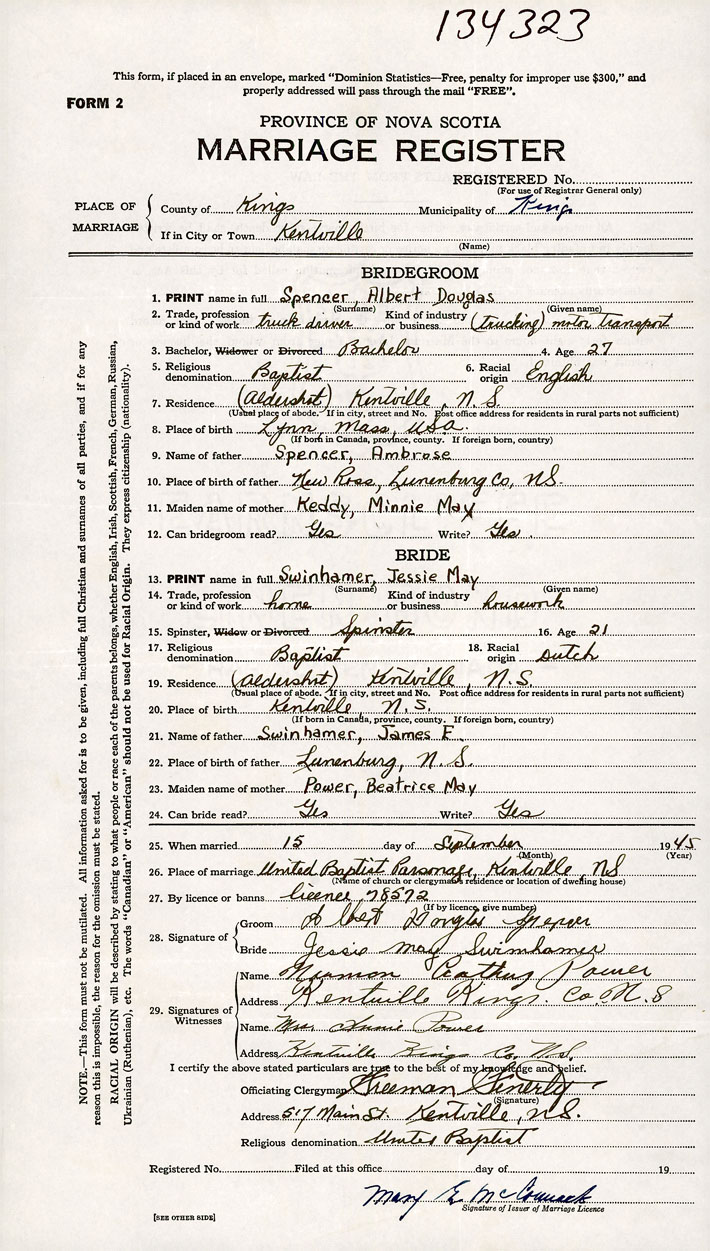 134323
This form, if placed in an envelope, marked "Dominion Statistics—Free, penalty for improper use $300," and
properly addressed will pass through the mail "FREE".
FORM 2
PROVINCE OF NOVA SCOTIA
MARRIAGE REGISTER
REGISTERED No.
(For use of Registrar General only)
PLACE OF MARRIAGE
County of Kings Municipality of Kings
If in City or Town Kentville
(Name)
BRIDEGROOM
1. PRINT name in full Spencer, Albert Douglas
(Surname) (Given name)
2. Trade, profession or kind of work truck driver Kind of industry or business (trucking) motor transport
3. Bachelor, Widower or Divorced Bachelor 4. Age 27
5. Religious denomination Baptist 6. Racial origin English
7. Residence (Aldershot) Kentville, N.S.
(Usual place of abode. If in city, street and No. Post office address for residents in rural parts not sufficient)
8. Place of birth Lynn, Mass, USA.
(If born in Canada, province, county. If foreign born, country)
9. Name of father Spencer, Ambrose
10. Place of birth of father New Ross, Lunenburg Co, NS.
11. Maiden name of mother Keddy, Minnie May
12. Can bridegroom read? Yes Write? Yes.
BRIDE
13. PRINT name in full Swinhamer, Jessie May
(Surname) (Given name)
14. Trade, profession or kind of work home Kind of industry or business housework
15. Spinster, Widow or Divorced Spinster 16. Age 21
17. Religious denomination Baptist 18. Racial origin Dutch
19. Residence (Aldershot) Kentville, N.S.
(Usual place of abode. If in city, street and No. Post office address for residents in rural parts not sufficient)
20. Place of birth Kentville N.S.
(If born in Canada, province, county. If foreign born, country)
21. Name of father Swinhamer, James F.
22. Place of birth of father Lunenburg, N.S.
23. Maiden name of mother Power, Beatrice May
24. Can bride read? Yes Write? Yes
25. When married 15 day of September 1945
(Month) (Year)
26. Place of marriage United Baptist Parsonage, Kentville, NS
(Name of church or clergyman's residence or location of dwelling house)
27. By licence or banns licence 78572
(If by licence, give number)
28. Signature of
Groom Albert Douglas Spencer
Bride Jessie May Swinhamer
29. Signatures of Witnesses
Name Norman Arthur Power
Address Kentville Kings. Co. N.S
Name Mrs Annie Power
Address Kentville Kings Co. N.S.
I certify the above stated particulars are true to the best of my knowledge and belief.
Officiating Clergyman Freeman Fenerty
(Signature)
Address 517 Main St. Kentville, N.S.
Religious denomination United Baptist
Registered No. Filed at this office day of 19
Mary E McCormack
Signature of Issuer of Marriage Licence
[SEE OTHER SIDE]
NOTE.—This form must not be mutilated. All information asked for is to be given, including full Christian and surnames of all parties, and if for any
reason this is impossible, the reason for the omission must be stated.
RACIAL ORIGIN will be described by stating to what people or race each of the parents belongs, whether English, Irish, Scottish, French, German, Russian,
Ukrainian (Ruthenian), etc. The words "Canadian" or "American" should not be used for Racial Origin. They express citizenship (nationality).